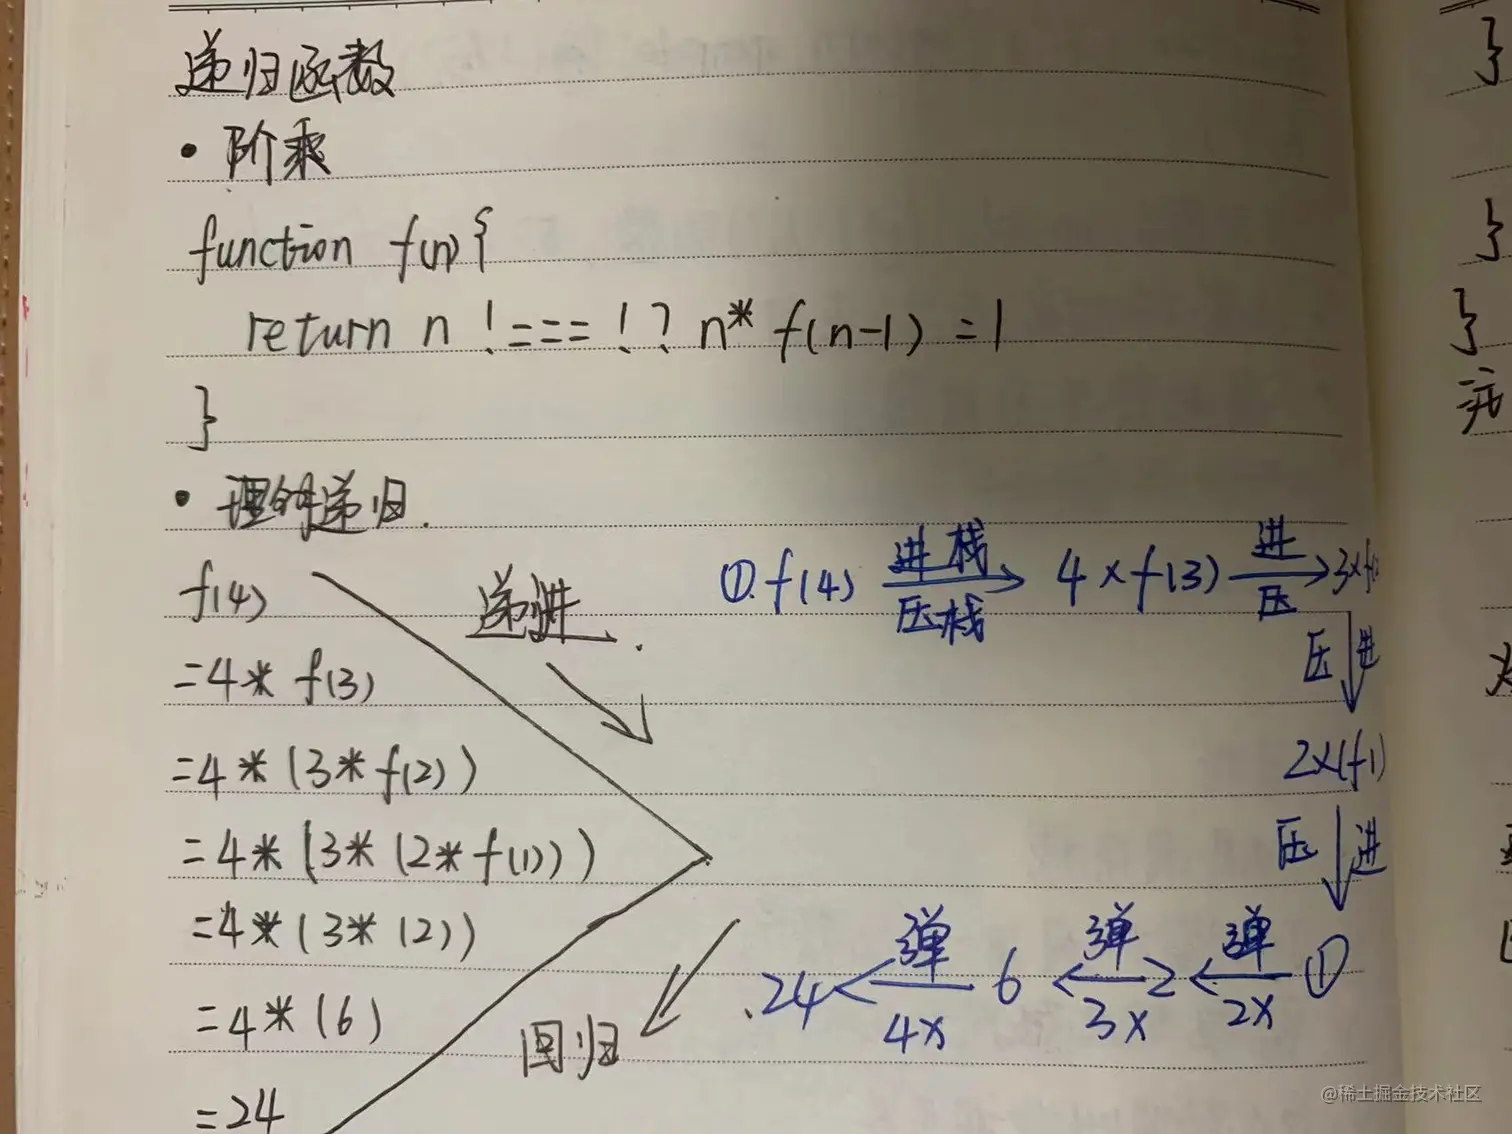 递归函数
• 阶乘
function f(n){
return n !=== ! ? n* f(n-1) = 1
}
• 理解递归.
f(4)
= 4* f(3)
= 4*(3* f(2))
= 4*(3*(2* f(1)))
= 4*(3*(2))
= 4*(6)
= 24
递进.
回归
① f(4) 进栈 压栈 4 × f(3) 进 压 3×f(
压 进
2×(f1)
压 进
①
弹 2×
2
弹 3×
6
弹 4×
.24
}
}
}
@稀土掘金技术社区